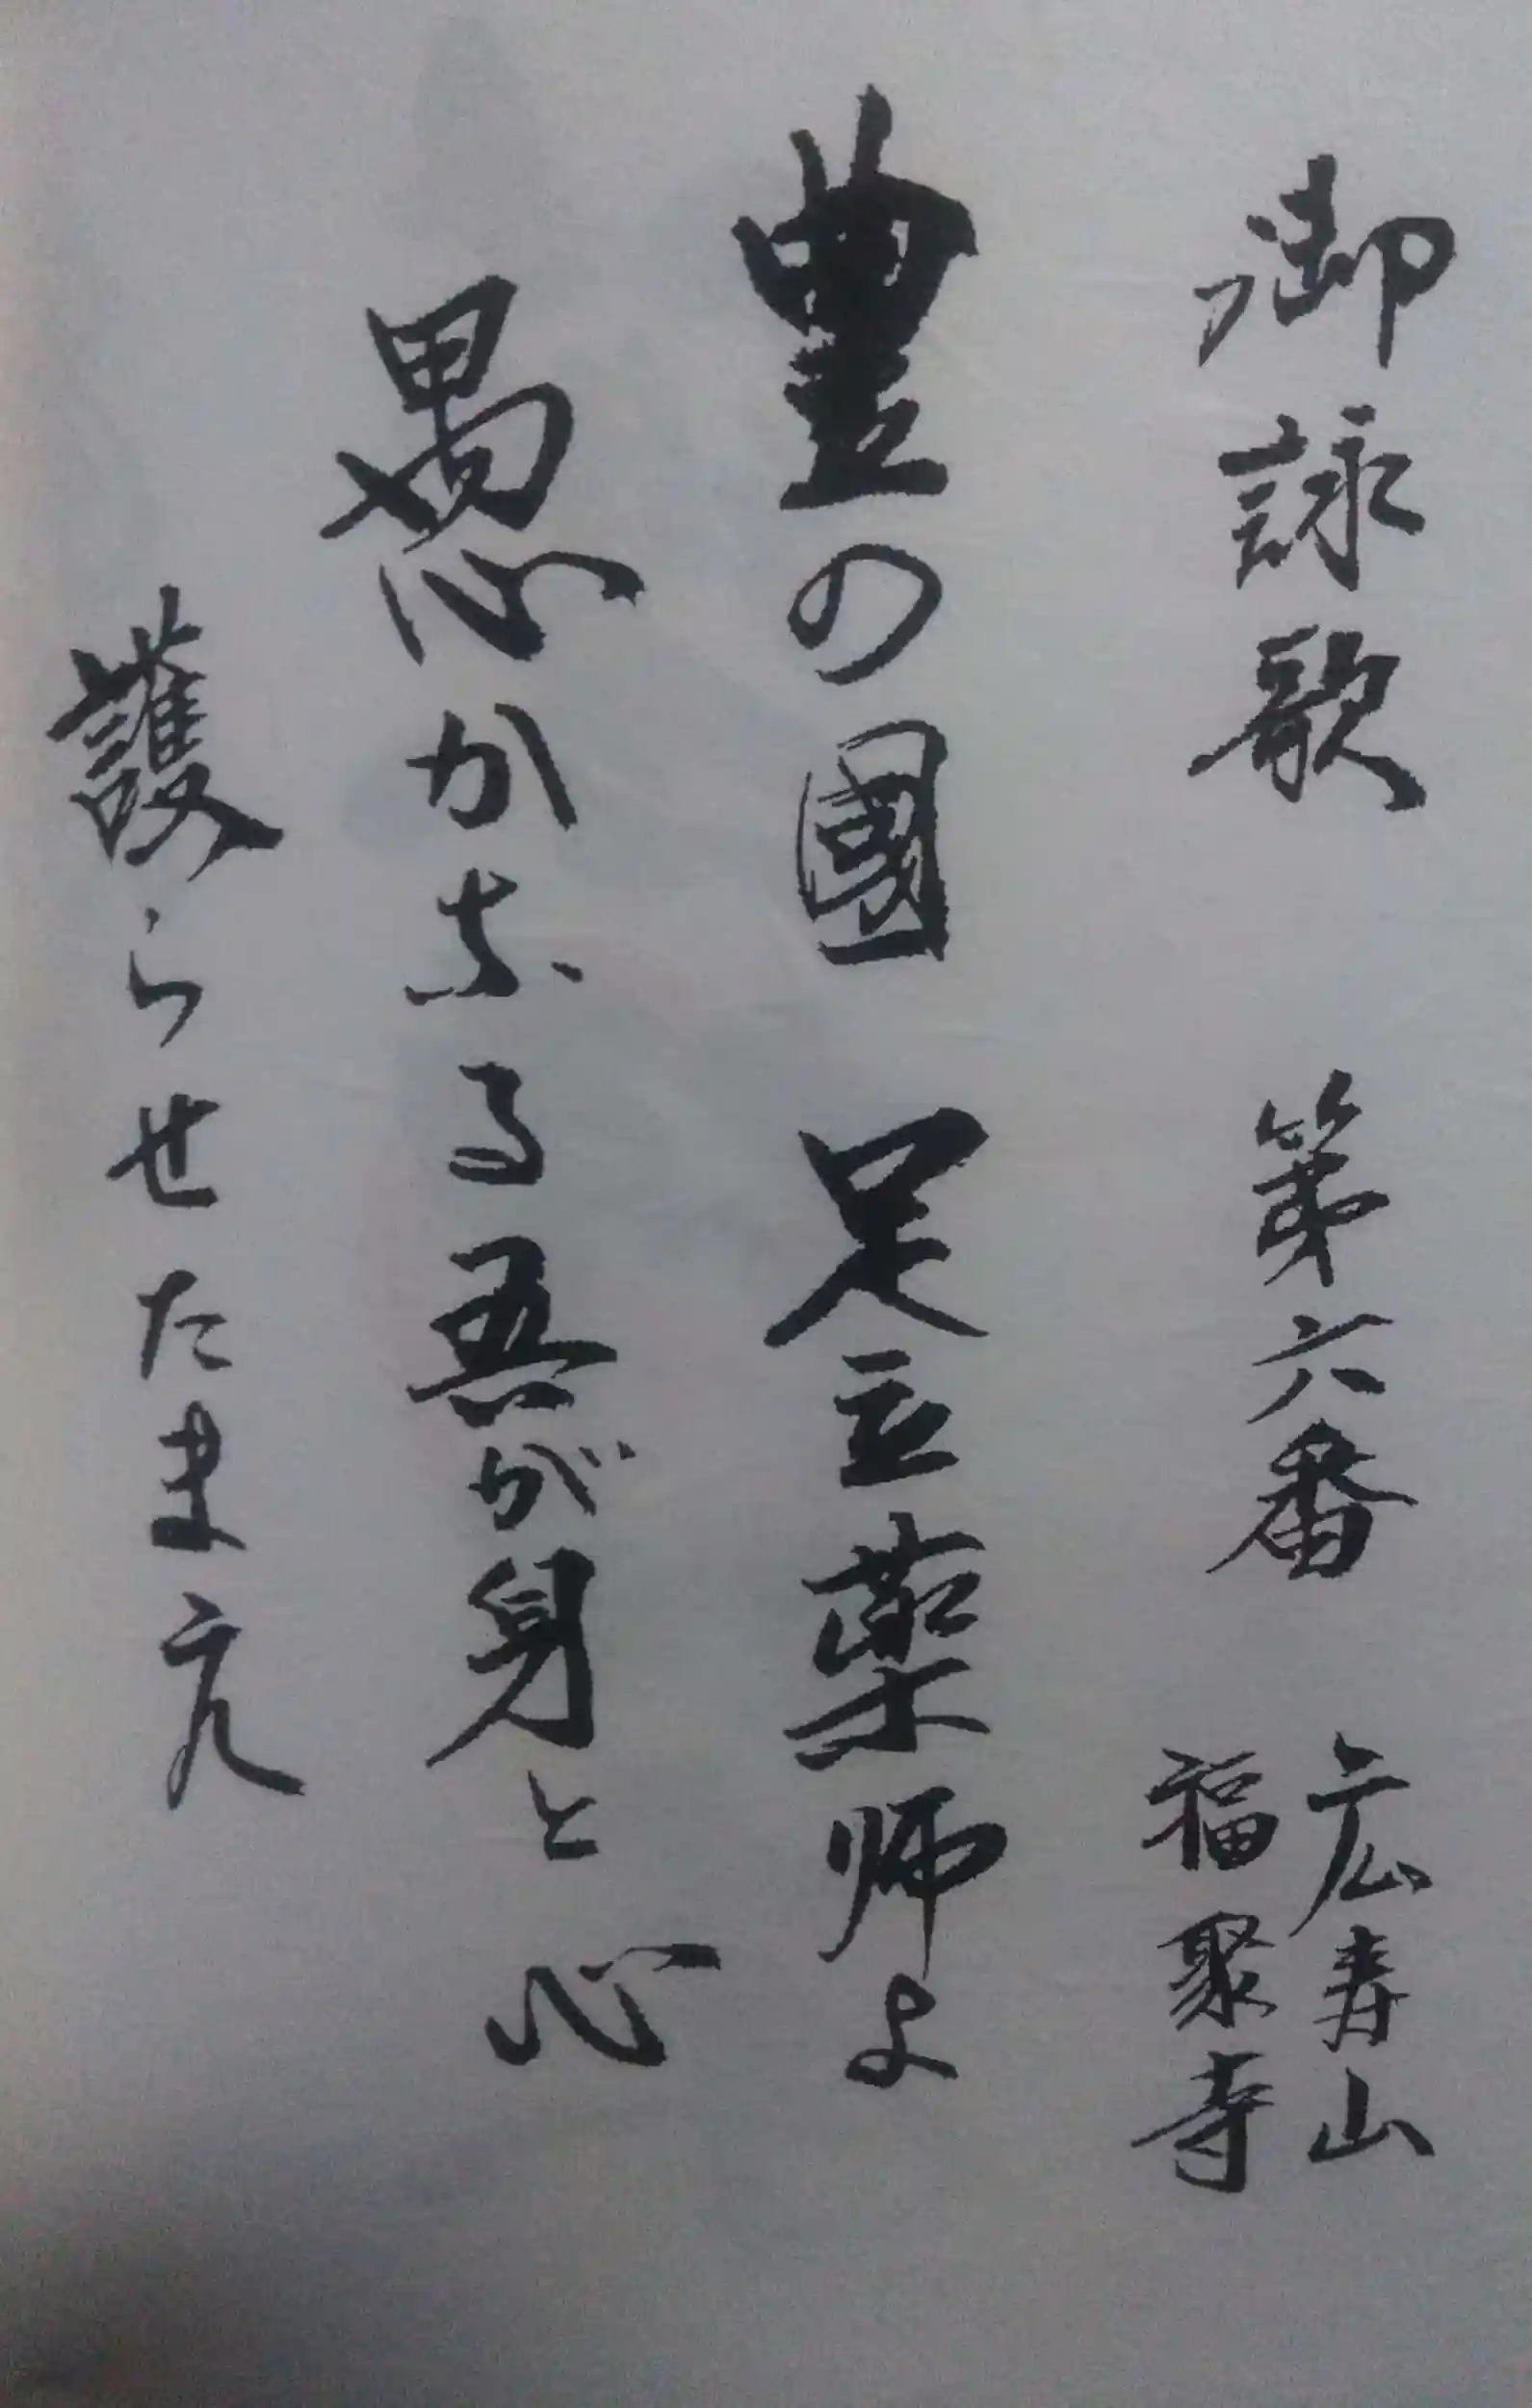 御詠歌 第六番 広寿山
福聚寺
豊の國 足立薬師よ
愚かなる吾が身と心
護らせたまえ